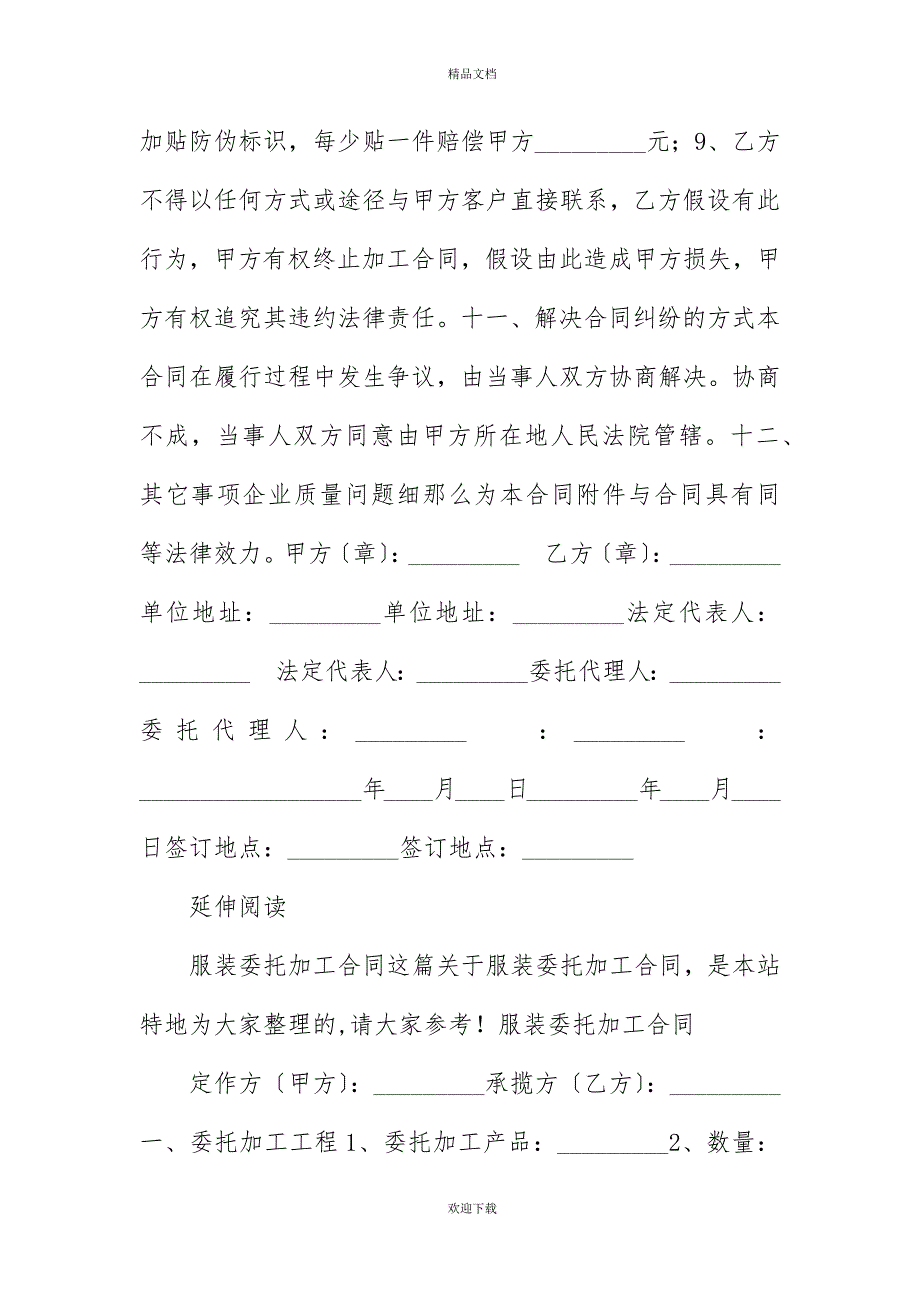 精品文档
加贴防伪标识，每少贴一件赔偿甲方_________元；9、乙方
不得以任何方式或途径与甲方客户直接联系，乙方假设有此
行为，甲方有权终止加工合同，假设由此造成甲方损失，甲
方有权追究其违约法律责任。十一、解决合同纠纷的方式本
合同在履行过程中发生争议，由当事人双方协商解决。协商
不成，当事人双方同意由甲方所在地人民法院管辖。十二、
其它事项企业质量问题细那么为本合同附件与合同具有同
等法律效力。甲方〔章〕：_________　乙方〔章〕：_________
单位地址：_________单位地址：_________法定代表人：
_________　法定代表人：_________委托代理人：_________
委托代理人：_________　：_________　：
__________________年____月____日_________年____月____
日签订地点：_________签订地点：_________
延伸阅读
服装委托加工合同这篇关于服装委托加工合同，是本站
特地为大家整理的,请大家参考！服装委托加工合同
定作方〔甲方〕：_________承揽方〔乙方〕：_________
一、委托加工工程1、委托加工产品：_________2、数量：
欢迎下载